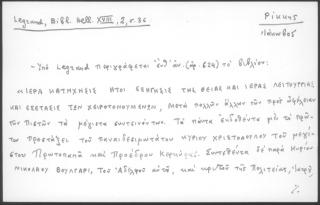 Legrand, Bibl. Hell. XVIII, 2, σ. 86
Ρίκκης
Ιάκωβος
- Υπό Legrand περιγράφεται ἐνθ' ἀν. (ἀρ. 624) τό βιβλίον:
« ΙΕΡΑ ΚΑΤΗΧΗΣΙΣ ΗΤΟΙ ΕΞΗΓΗΣΙΣ ΤΗΣ ΘΕΙΑΣ ΚΑΙ ΙΕΡΑΣ ΛΕΙΤΟΥΡΓΙΑΣ,
ΚΑΙ ΕΞΕΤΑΣΙΣ ΤΩΝ ΧΕΙΡΟΤΟΝΟΥΜΕΝΩΝ, μετά πολλῶν ἄλλων τῶν πρός ὠφέλειαν
τῶν Πιστῶν τά μέγιστα συντεινόντων. Τά πάντα ἐκδοθέντα μέν τό πρῶ-
τον προστάξει τοῦ πανσιδεσιμωτάτου ΚΥΡΙΟΥ ΧΡΙΣΤΟΔΟΥΛΟΥ τοῦ μεγί-
στου Πρωτοπαπᾶ καί Προέδρου Κερκύρας. Συντεθέντα δέ παρά Κυρίου
ΝΙΚΟΛΑΟΥ ΒΟΥΛΓΑΡΙ, Τοῦ Ἀδελφοῦ αὐτοῦ, καί κριτοῦ τῆς Πολιτείας, Ἰατροῦ,
./.